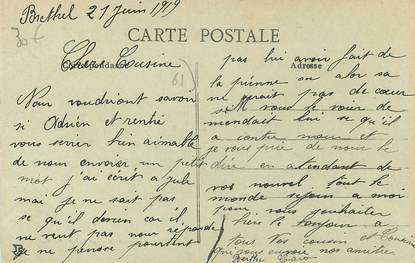 Brethel 21 Juin 1919
30€
CARTE POSTALE
Correspondance
Adresse
Cher Cousine
61
Nous voudriont savoir
si Adrien et rentré
vous serier bien aimable
de nous envoier un petit
mot j'ai écrit a Jule
mai je ne sait pas
se qu'il devien car il
ne veut pas nous répondre
ne pensse pourtent
pas lui avoir fait de
la peinne on alor sa
ne serait pas de cœur
si vous le voier
demandait lui se qu'il
a contre nous et
je vous prie de nous le
dire en atendant de
vos nouvel tout le
monde se join a moi
pour vous souhaiter
bien le bonjour a
Tous Vos cousin et Cousine
qui vous envoie nos amitier
Berthe